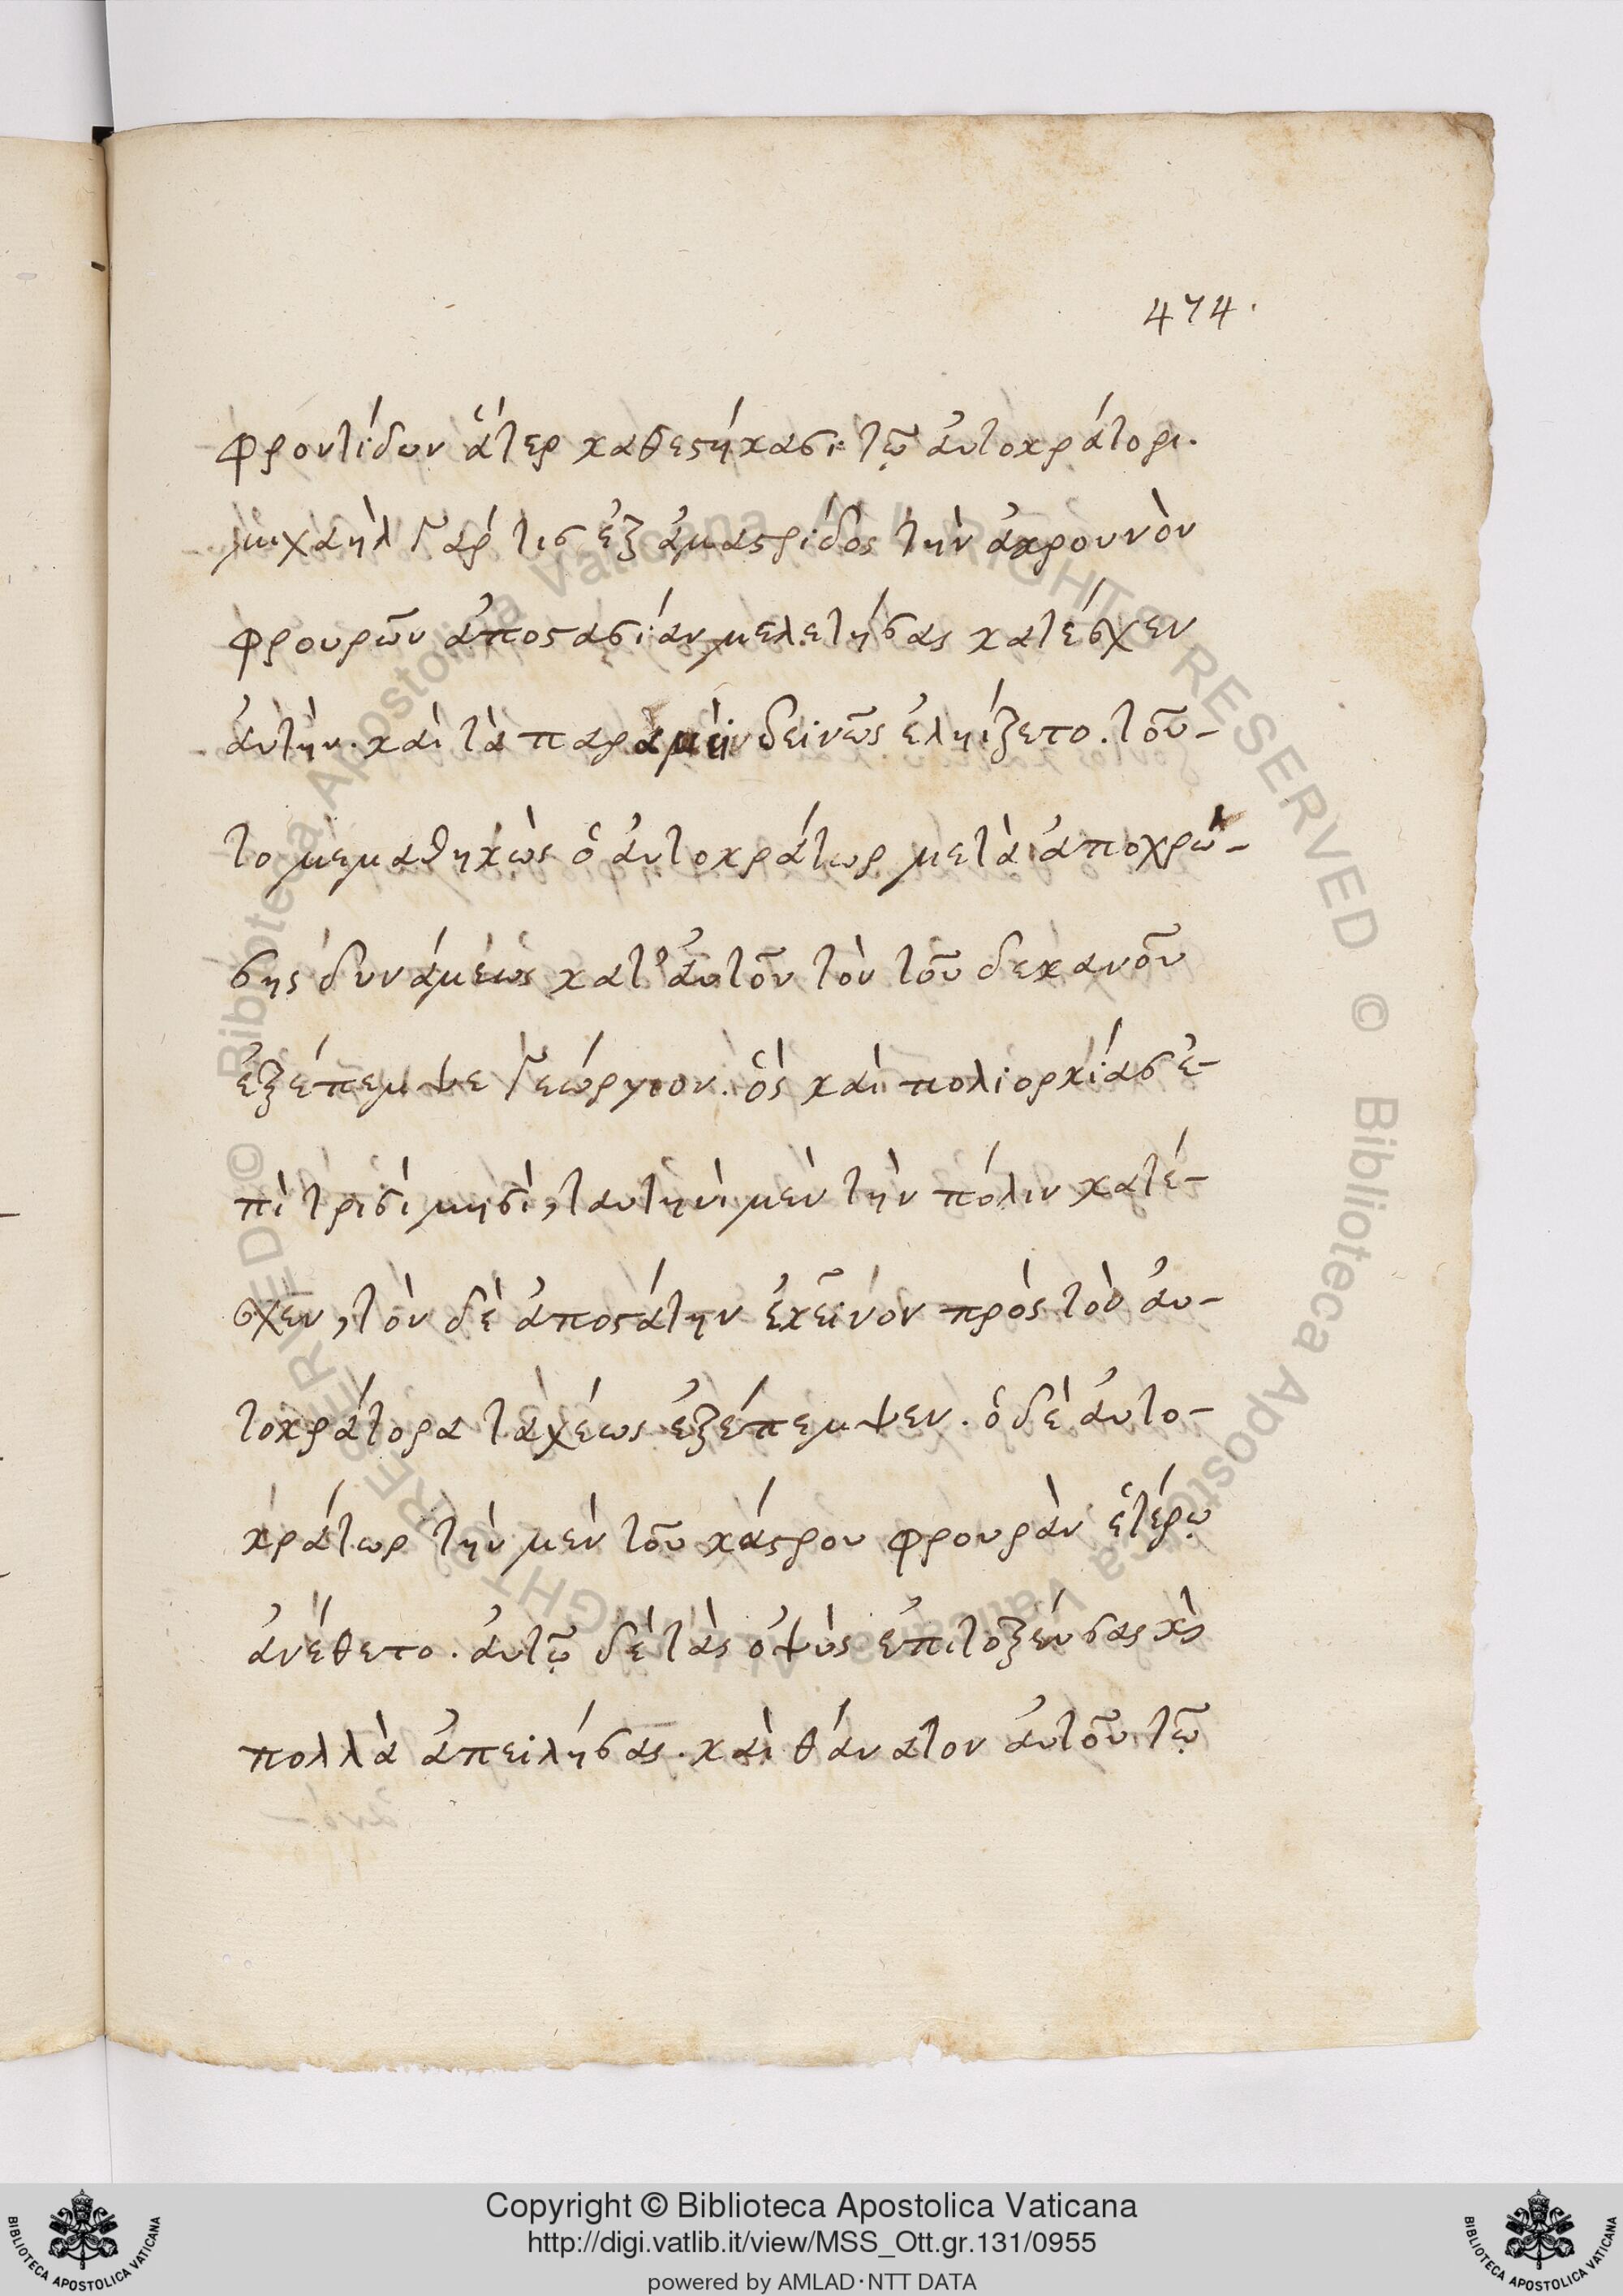 474.
φροντίδων ἄτερ καθεστήκασι τῷ αὐτοκράτορι.
μιχαὴλ γάρ τις ἐξ ἀμαστρίδος τὴν ἀκρουνὸν
φρουρῶν ἀποστασίαν μελετήσας κατέσχεν
αὐτὴν. καὶ τὰ παρ δεινῶς ἐληίζετο. τοῦ-
το μεμαθηκὼς ὁ αὐτοκράτωρ μετὰ ἀποχρώ-
σης δυνάμεως κατ' αὐτοῦ τὸν τοῦ δεκανοῦ
ἐξέπεμψε γεώργιον. ὃς καὶ πολιορκίας ἐ-
πὶ τρισὶ μησὶ, ταυτηνὶ μὲν τὴν πόλιν κατέ-
σχεν, τὸν δὲ ἀποστάτην ἐκεῖνον πρὸς τὸν αὐ-
τοκράτορα ταχέως ἐξέπεμψεν. ὁ δὲ αὐτο-
κράτωρ τὴν μὲν τοῦ κάστρου φρουρὰν ἑτέρῳ
ἀνέθετο. αὐτῷ δὲ τὰς ὀφῦς ἐπιτοξεύσας κὶ
πολλὰ ἀπειλήσας. καὶ θάνατον αὐτοῦ τῷ
Copyright © Biblioteca Apostolica Vaticana
http://digi.vatlib.it/view/MSS_Ott.gr.131/0955
powered by AMLAD·NTT DATA
BIBLIOTECA APOSTOLICA VATICANA
BIBLIOTECA APOSTOLICA VATICANA
© Biblioteca Apostolica Vaticana ALL RIGHTS RESERVED © Biblioteca Apostolica Vaticana ALL RIGHTS RESERVED